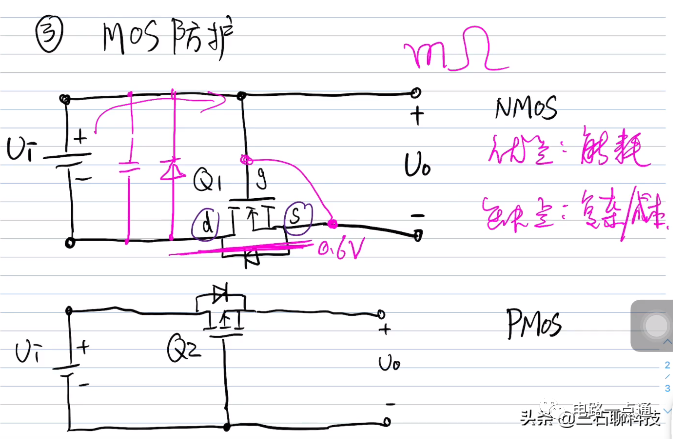 ③ MOS防护
mΩ
NMOS
优点：能耗
缺点：复杂/成本
Ui
+
-
Q1
g
d
s
0.6V
+
Uo
-
PMOS
Ui
+
-
Q2
+
Uo
-
2
/
3
电路一点通
头条@三石聊科技